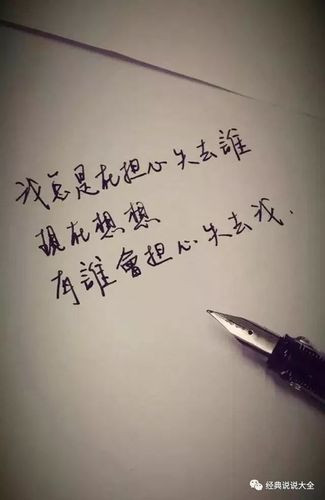 我总是在担心失去誰
現在想想
有誰會担心失去我.
经典说说大全